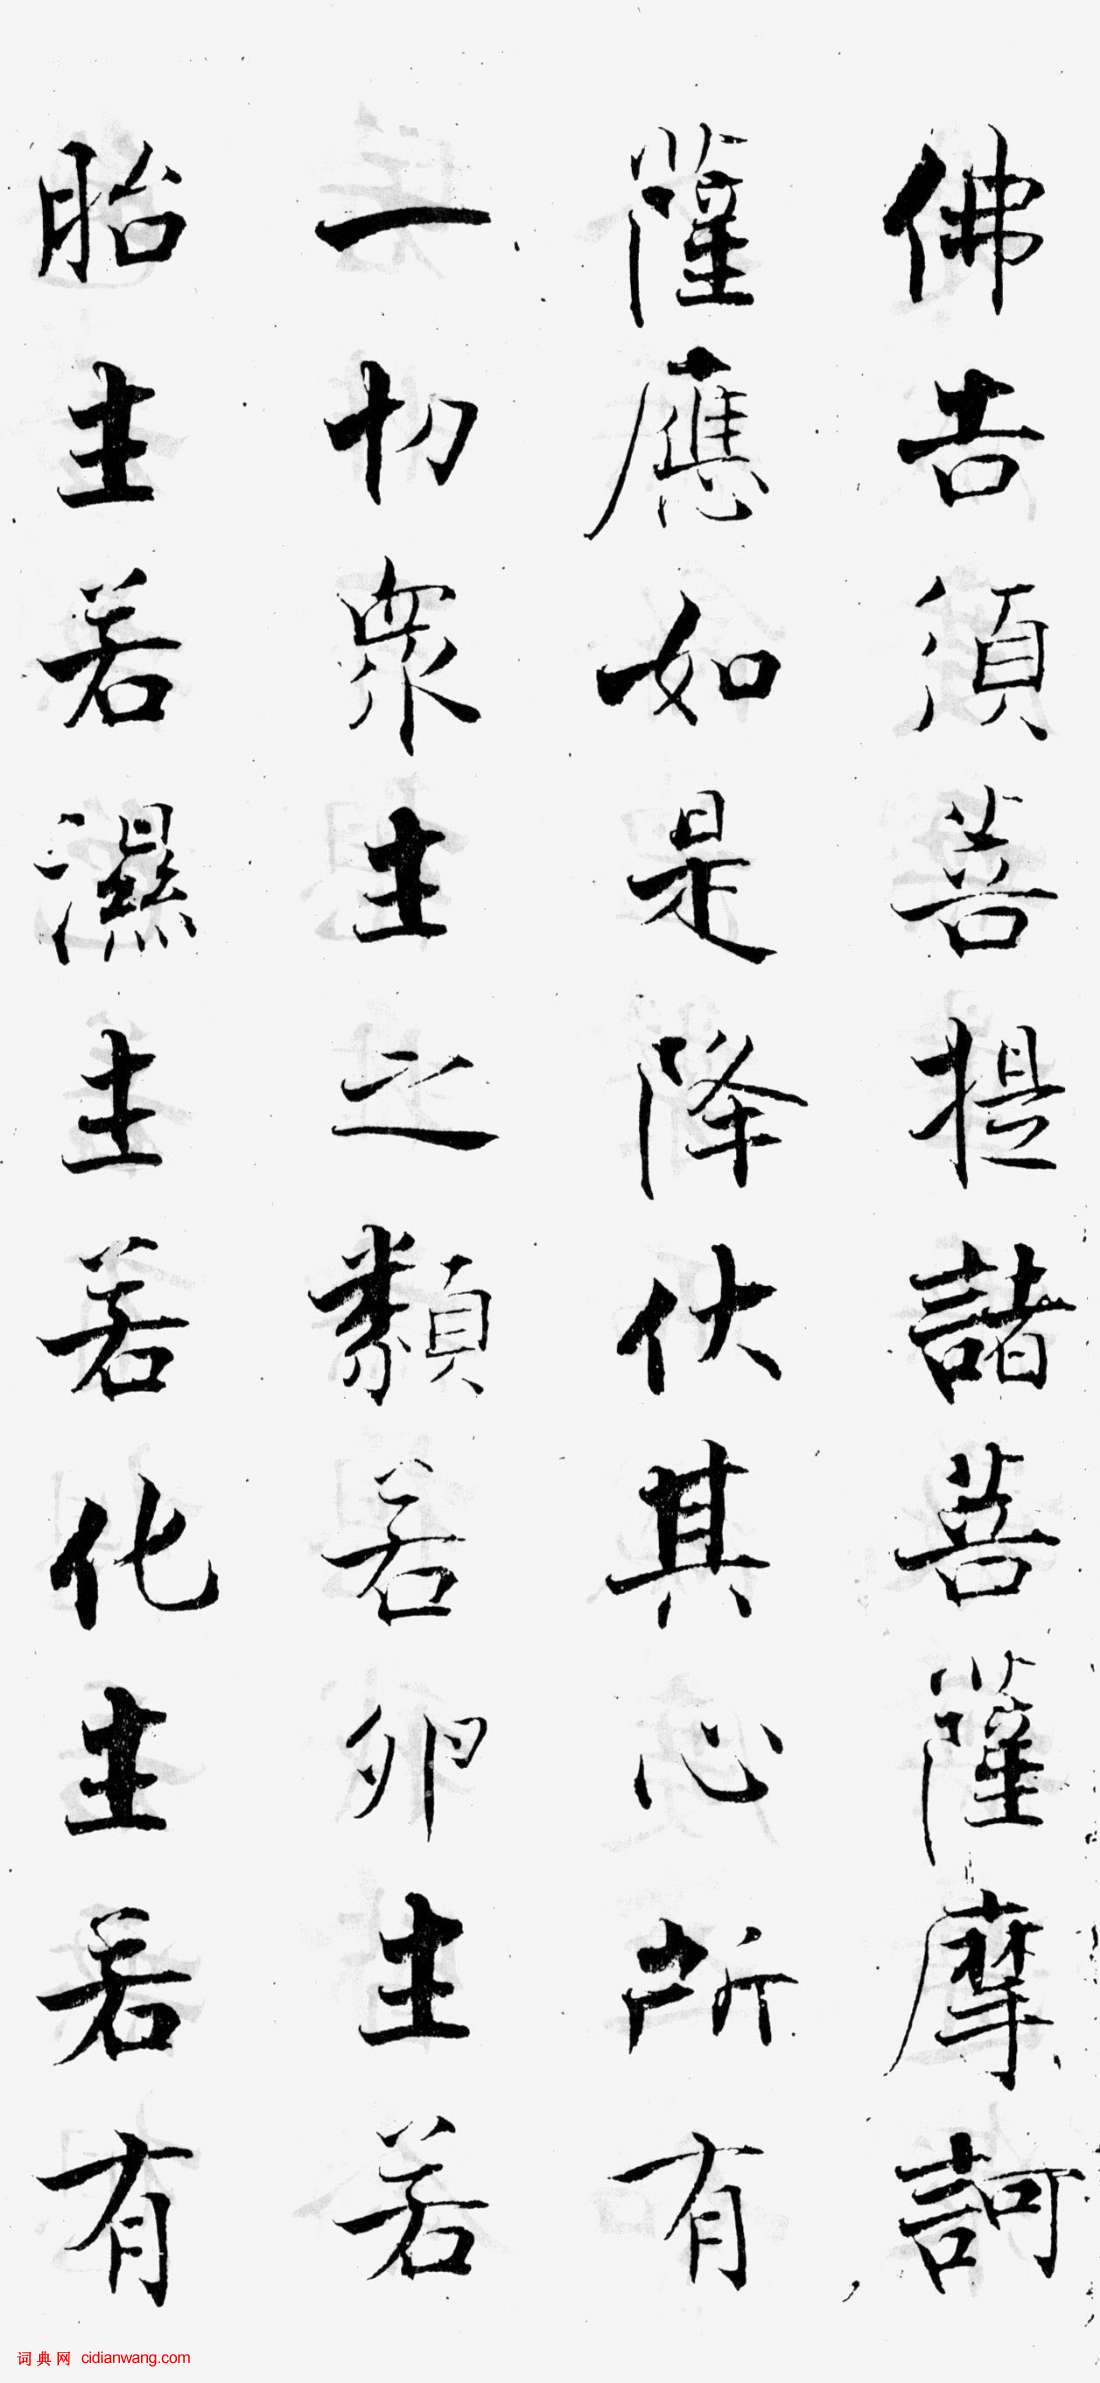 佛告須菩提諸菩薩摩訶
薩應如是降伏其心所有
一切眾生之類若卵生若
胎生若濕生若化生若有
词典网 cidianwang.com